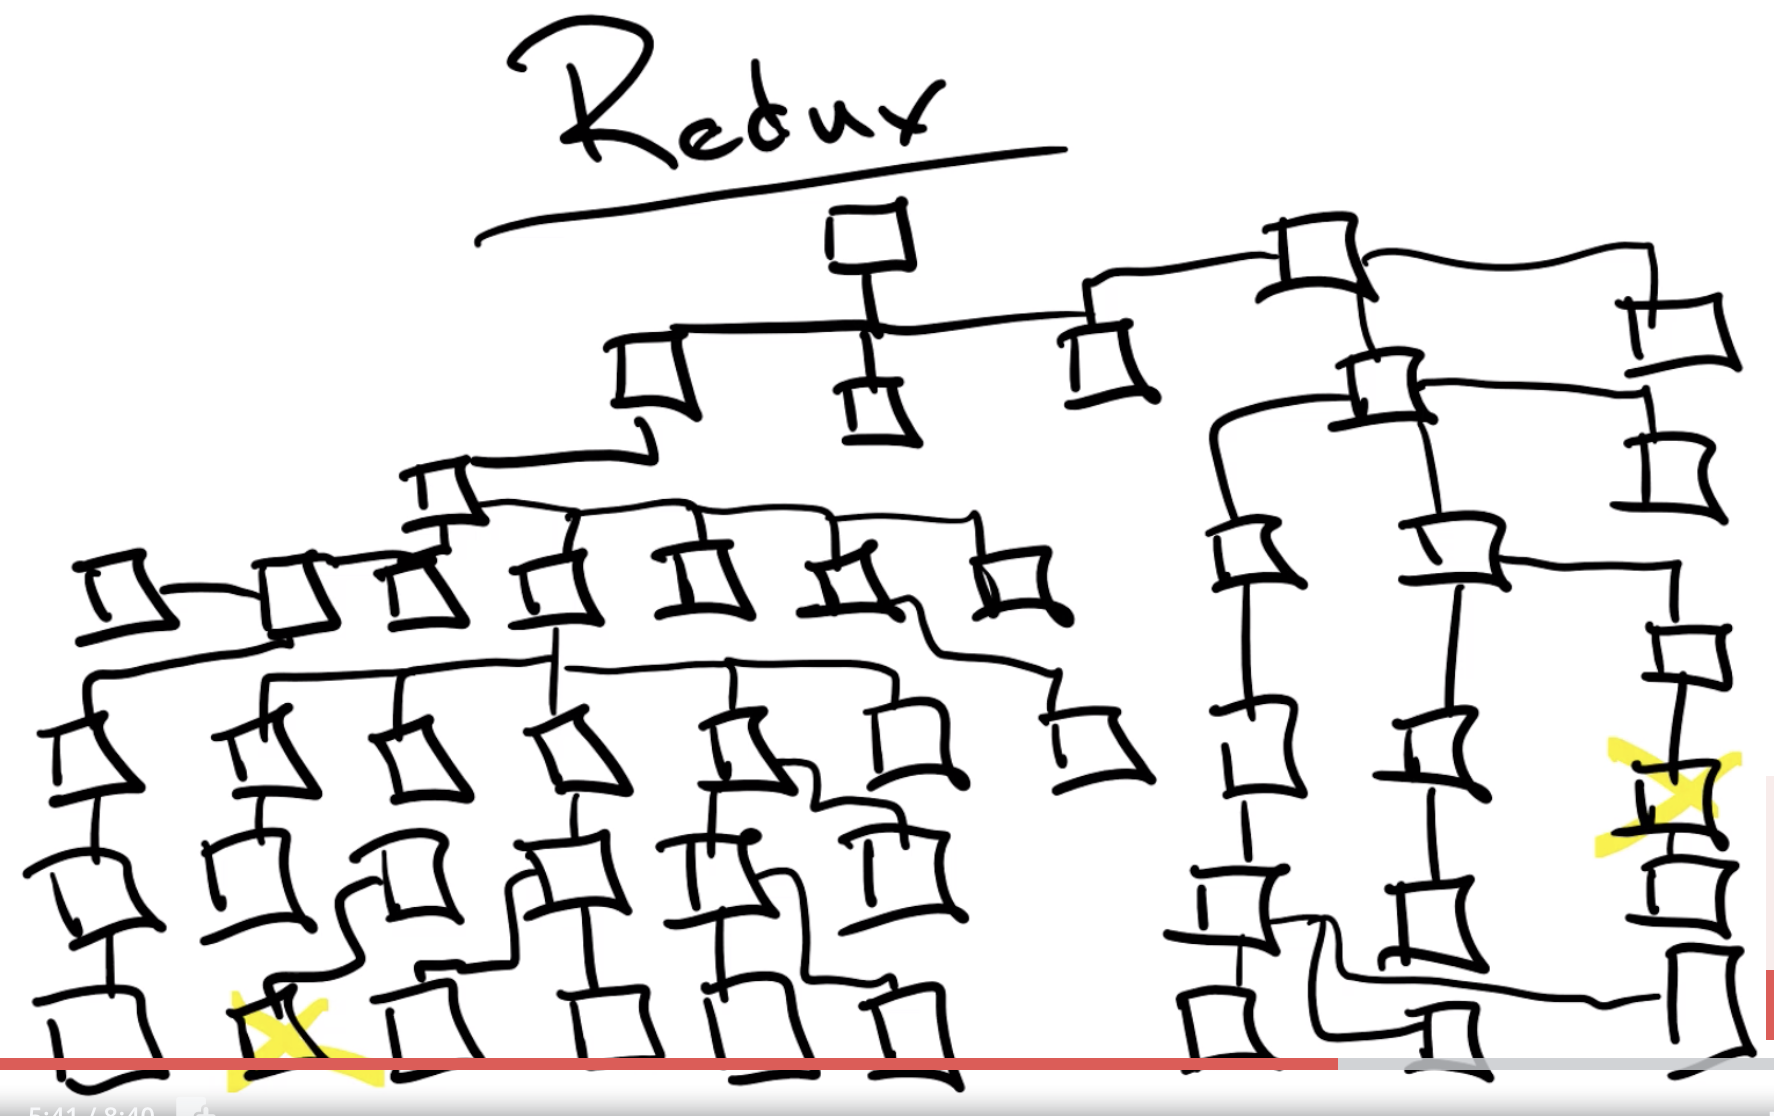 Redux
5:41 / 8:40